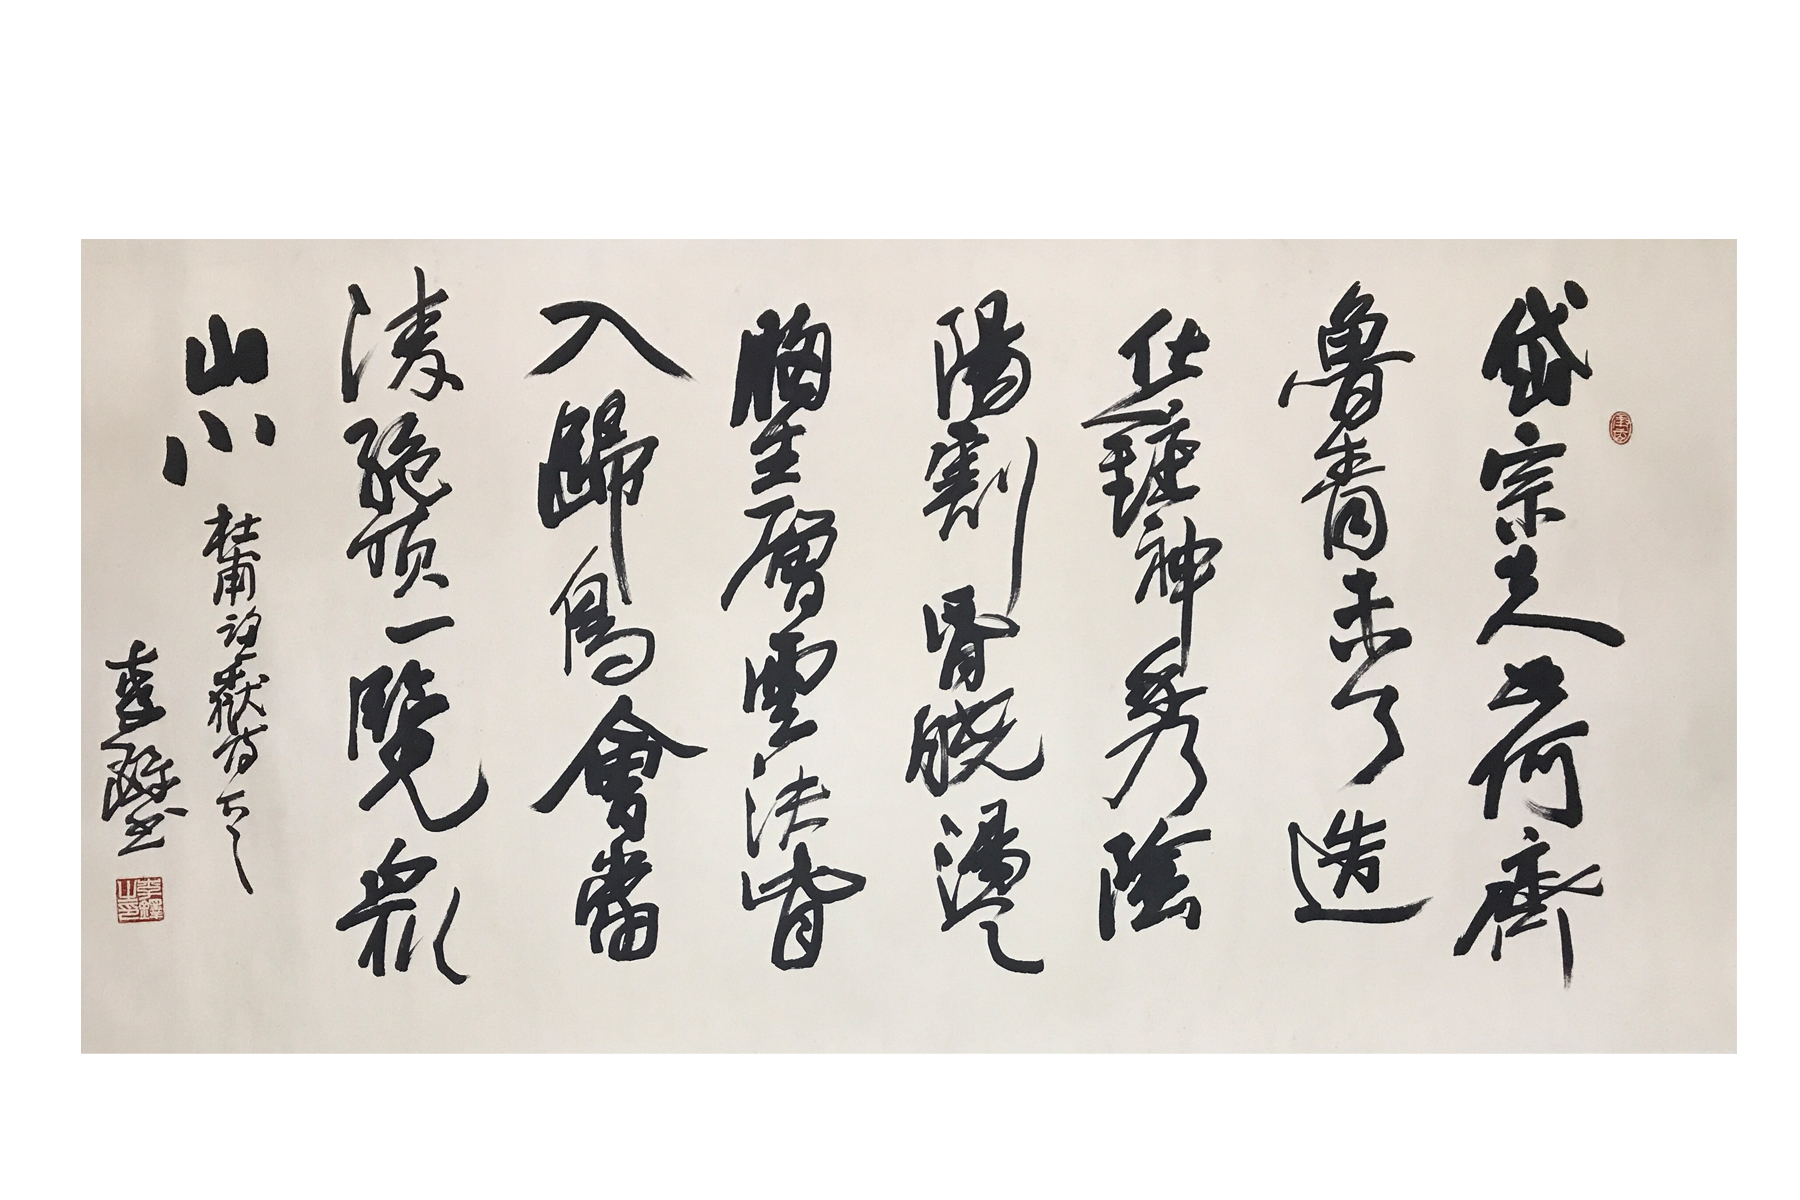 岱宗夫如何齊
魯青未了造
化鍾神秀陰
陽割昏曉盪
胸生層雲決眥
入歸鳥會當
淩絕頂一覽眾
山小
杜甫望嶽詩
李鐸書